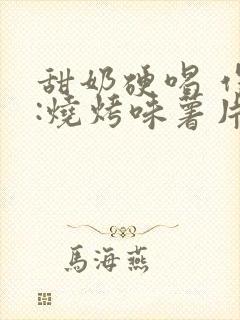 甜奶硬唱
:燒烤味薯片
馬海燕